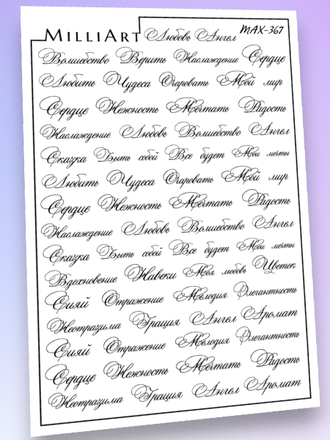 MILLIART Любовь Ангел MAX-367
Волшебство Верить Наслаждение Сердце
Любить Чудеса Очаровать Мой мир
Сердце Нежность Мечтать Радость
Наслаждение Любовь Волшебство Ангел
Сказка Быть собой Все будет Мои мечты
Любить Чудеса Очаровать Мой мир
Сердце Нежность Мечтать Радость
Наслаждение Любовь Волшебство Ангел
Сказка Быть собой Все будет Мои мечты
Вдохновение Навеки Моя любовь Цветок
Сияй Отражение Мелодия Элегантность
Неотразима Грация Ангел Аромат
Сияй Отражение Мелодия Элегантность
Сердце Нежность Мечтать Радость
Неотразима Грация Ангел Аромат